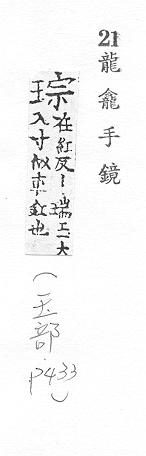 21 龍龕手鏡
琮在紅反丨瑞玉大
八寸似車釭也
(玉部 p433)